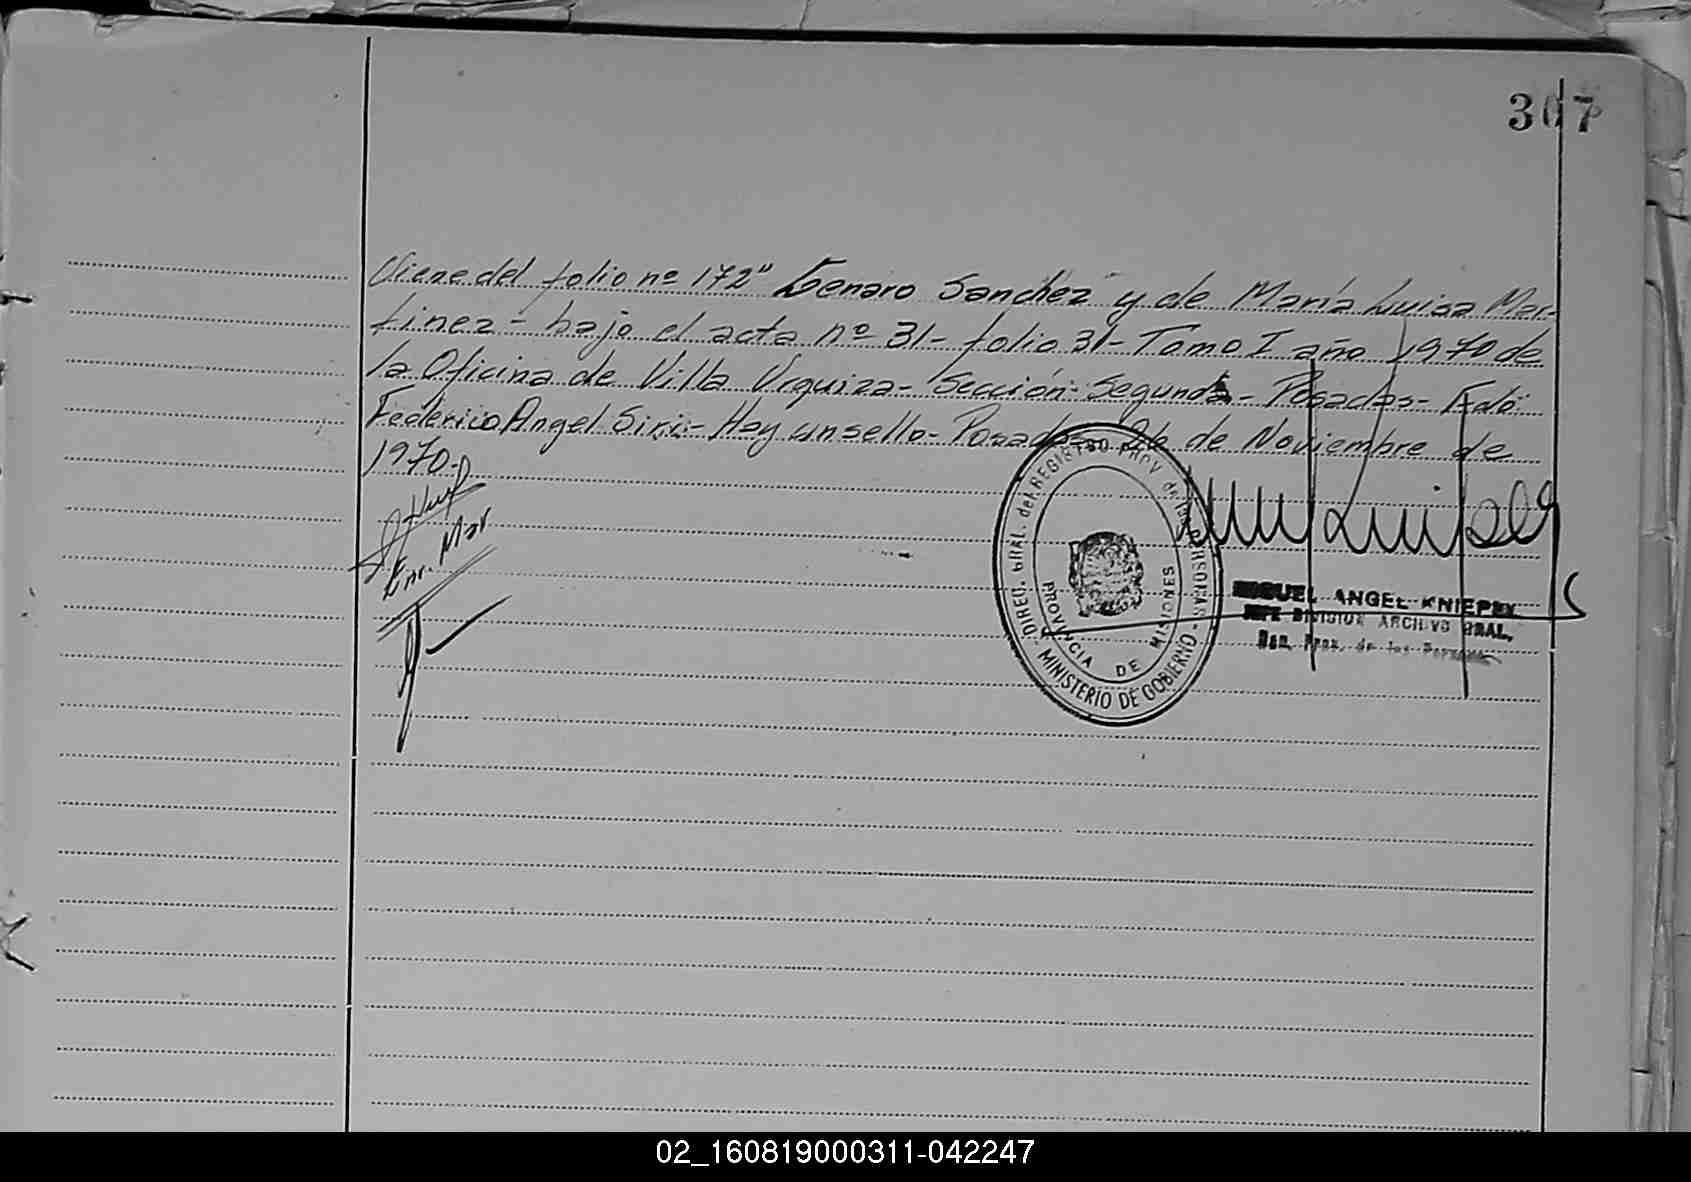 307
Viene del folio nº 172" Genaro Sanchez" y de María Luisa Mar-
tinez - bajo el acta nº 31 - folio 31 - Tomo I año 1970 de
la Oficina de Villa Urquiza - Sección: Segunda - Posadas - Fdo:
Federico Angel Siri - Hay un sello - Posadas 26 de Noviembre de
1970.-
DIREC. GRAL. del REGISTRO PROV. de las PERSONAS - MINISTERIO DE GOBIERNO -
PROVINCIA DE MISIONES
MIGUEL ANGEL KNIEPEL
JEFE DIVISION ARCHIVO GRAL.
Prov. de las Personas
02_160819000311-042247